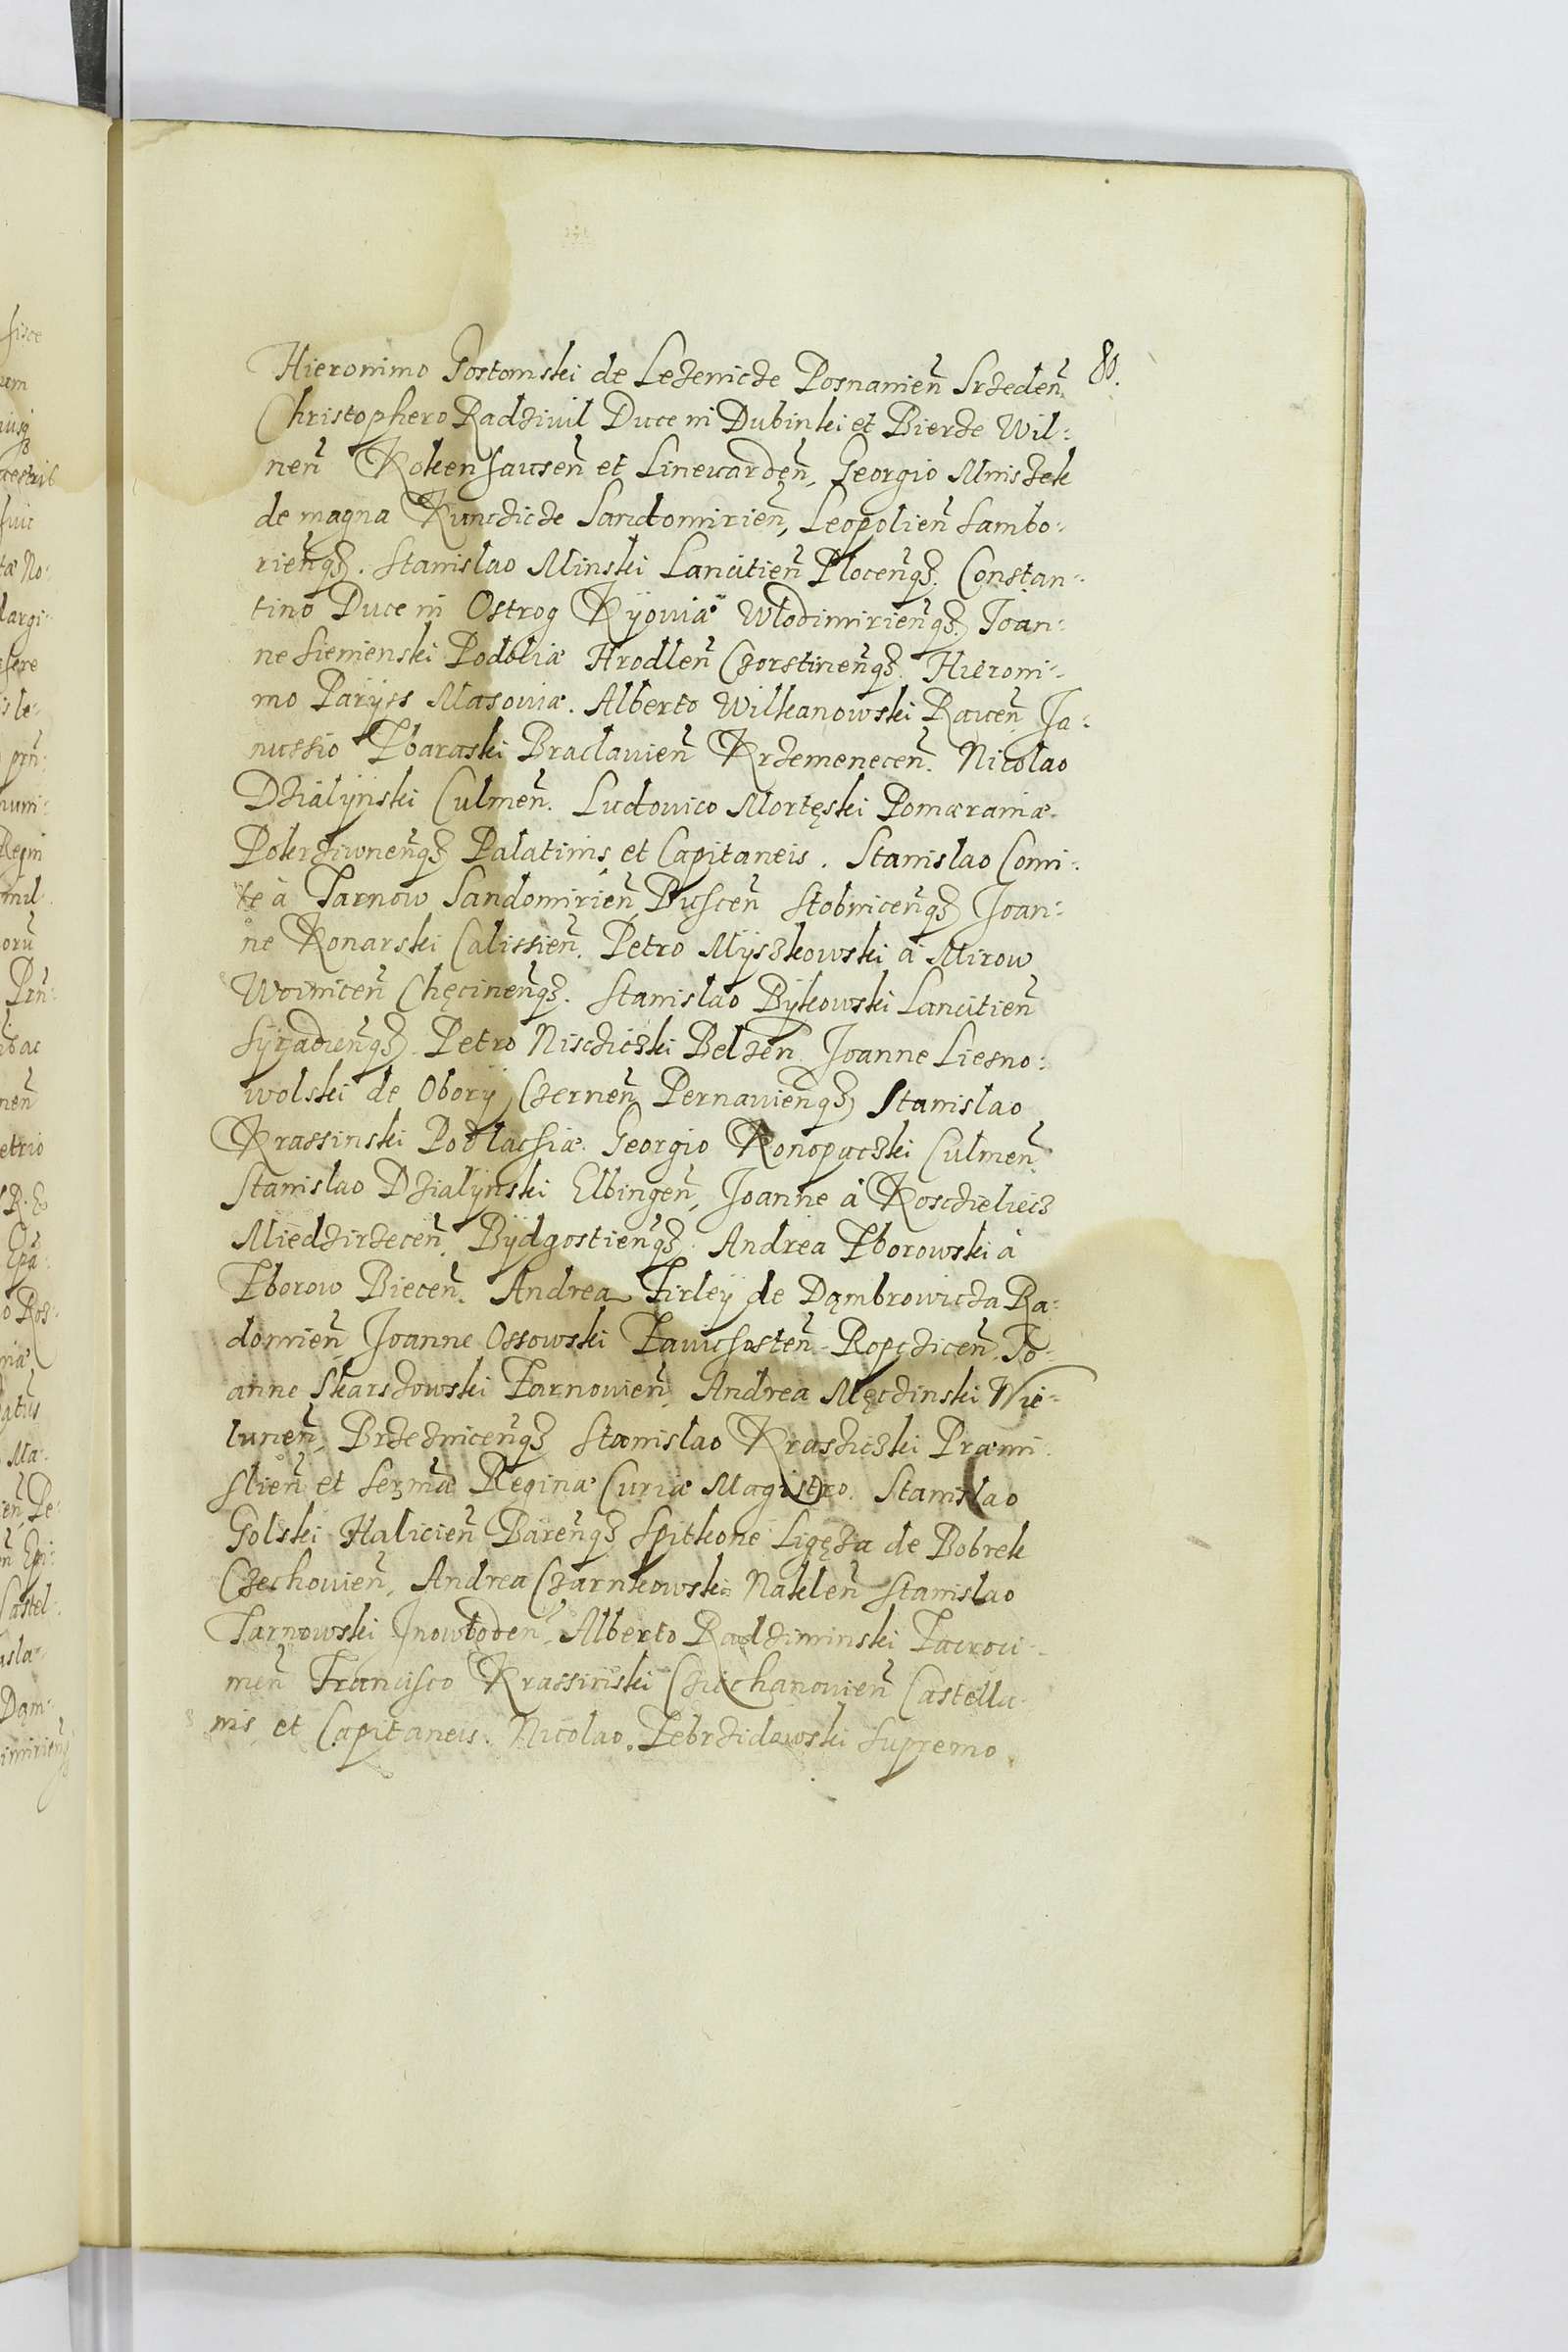 80.
Hieronimo Gostomski de Lezenicze Posnanien̄ Srzeden̄
Christophero Radziuil Duce in Dubinki et Bierze Wil:
nen̄ Kokenhausen̄ et Lineuarden̄, Georgio Mniszek
de magna Kunczicze Sandomirien̄, Leopolien̄ Sambo:
rien̄q3. Stanislao Minski Lancitien̄ Plocen̄q3. Constan:
tino Duce in Ostrog Kÿouiæ Wlodimirien̄q3. Joan:
ne Siemenski Podoliæ Hrodlen̄ Czorstinen̄q3. Hieroni:
mo Parÿss Masouiæ. Alberto Wilkanowski Rauen̄, Ja:
nussio Zbaraski Braclauien̄ Krzemenecen̄. Nicolao
Dzialÿnski Culmen̄. Ludouico Mortęski Pomæraniæ
Pokrziwnen̄q3 Palatinis et Capitaneis. Stanislao Comi:
te à Tarnow Sandomirien̄, Buscen̄ Stobnicen̄q3 Joan:
ne Konarski Calissien̄. Petro Mÿszkowski à Mirow
Woinicen̄ Chęcinen̄q3. Stanislao Bÿkowski Lancitien̄
Sÿradien̄q3. Petro Niscziczki Belzen̄. Joanne Liesno:
wolski de Oborÿ Czernen̄ Pernauien̄q3 Stanislao
Krassinski Podlachiæ. Georgio Konopaczki Culmen̄.
Stanislao Dzialÿnski Elbingen̄, Joanne à Koscieliecz
Miedzirzecen̄, Bÿdgostien̄q3. Andrea Zborowski à
Zborow Biecen̄. Andrea Firleÿ de Dąmbrowicza Ra:
domien̄ Joanne Ossowski Zauichosten̄ Ropczicen̄. Jo:
anne Skarszowski Zarnouien̄, Andrea Męczinski Wie:
lunen̄, Brzeznicen̄q3 Stanislao Krasziczki Præmi:
slien̄ et Ser3mæ Reginæ Curiæ Magistro. Stanislao
Golski Halicien̄ Baren̄q3 Spitkone Ligęza de Bobrek
Czechouien̄, Andrea Czarnkowski Naklen̄ Stanislao
Tarnowski Jnowloden̄, Alberto Radziminski Zacroci:
men̄ Francisco Krassinski Cziechanouien̄ Castella:
nis et Capitaneis. Nicolao Zebrzidowski Supremo